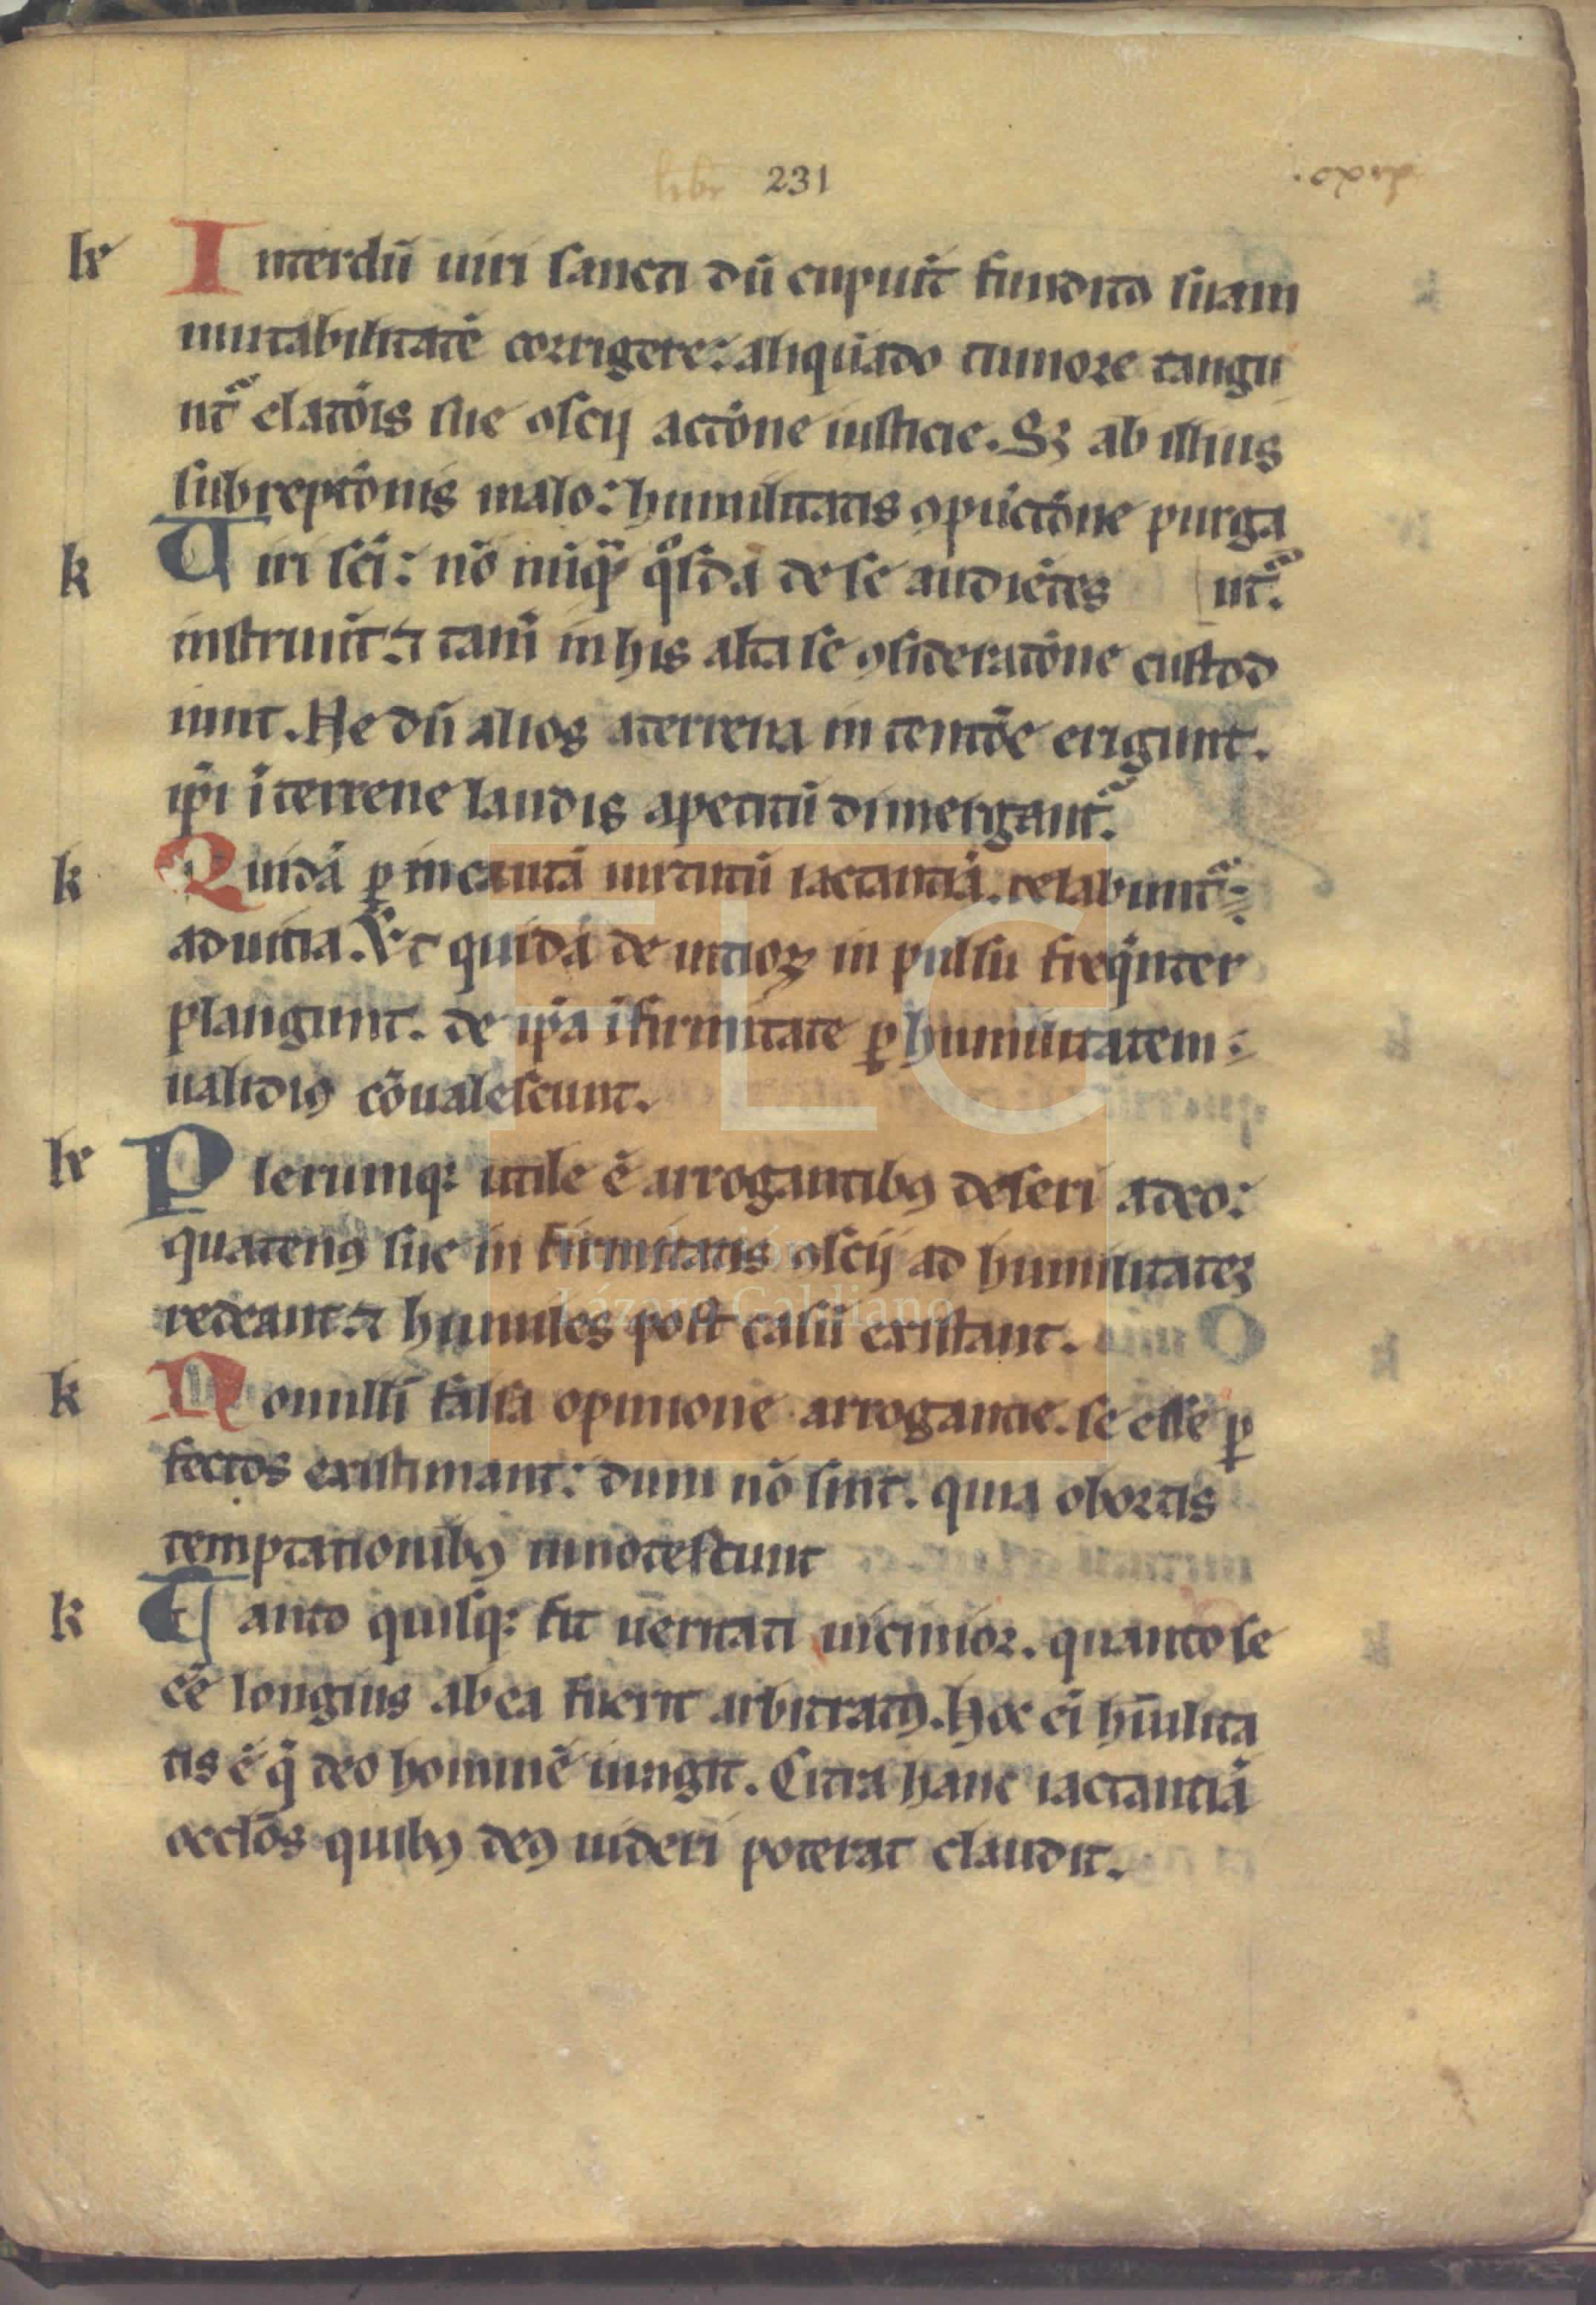 libr 231
lx Interdū uiri sancti dū cupiūt funditꝰ suam
mutabilitatē corrigere: aliquādo tumore tangu
nt᷑ elatōis sue ꝯscij actōne iusticie. Sꝫ ab illius
subreptōnis malo: humilitatis ꝯpūctōne purga
nt᷑.
k Uiri sc̄i: nō nūq̄ qͦsdā de se audiētes
instruūt. ⁊ tam̄ in his alta se ꝯsideratōne custod
iunt. Ne dū alios a terrena intentōe erigunt.
ip̄i ī terrene laudis apetitū dimergant᷑.
k Quidā ꝑ incautā uirtutū iactantiā. relabunt᷑
ad uitia. Et quidā de uitioꝝ in pulsu freq̄nter
plangunt. de ip̄a īfirmitate ꝑ humilitatem:
ualidiꝰ cōualescunt.
lx Plerumqꝫ utile ē arrogantibꝰ deseri a deo:
quatenꝰ sue in firmitatis ꝯscij ad humilitateꝫ
redeant. ⁊ humiles post casū existant.
k Nonulli falsa opinione arrogantie. se esse ꝑ
fectos existimant: dum nō sint. quia obortis
temptationibꝰ innotescunt
k Tanto quisqꝫ fit ueritati uicinior. quanto se
eē longius ab ea fuerit arbitratꝰ. Hoc ei hūilita
tis ē q̄ deo hominē iungit. Citra hanc iactantiā
occlōs quibꝰ deꝰ uideri poterat claudit.
FLG
Fundación
Lázaro Galdiano